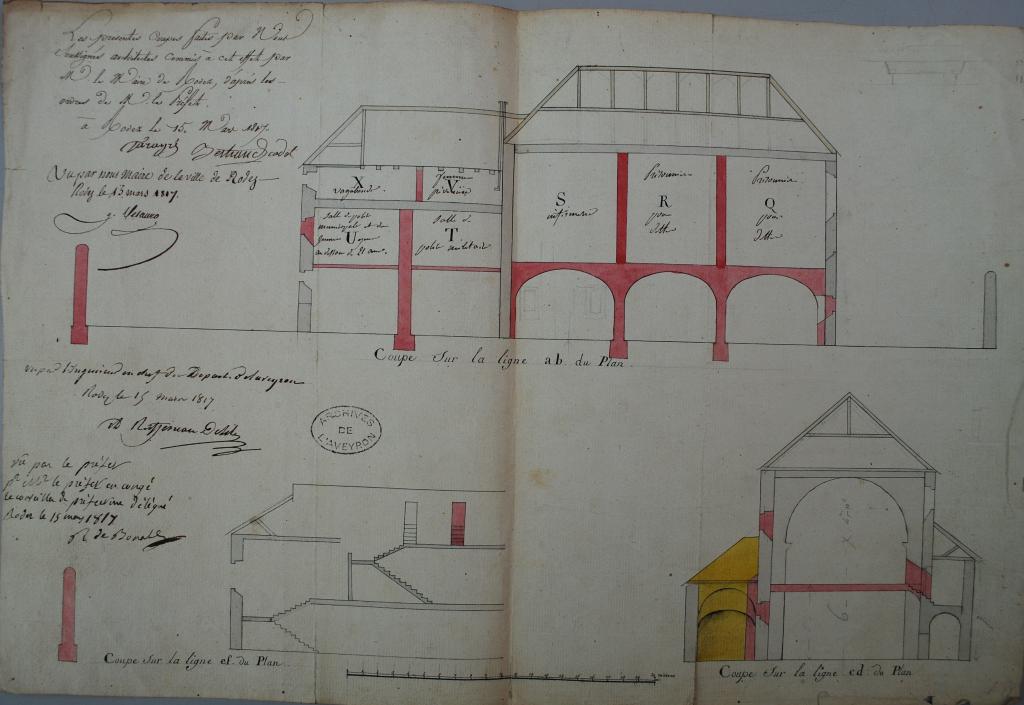 Les presentes Coupes faites par Nous
Soussignés architectes Commis à cet effet par
Mr. le Maire de Rodez, d'après les
ordres de Mr. le Préfet.
à Rodez le 15. Mars 1817.
Vu par nous Maire de la ville de Rodez
Rodez le 15 mars 1817.
X
vagabonds
V
femmes
S
infirmerie
Prisonnier
R
pour
dette
Prisonnier
Q
pour
dette
Salle de police
municipale et de
U
au dessous de 21 ans.
Salle de
T
police
Coupe Sur la ligne ab. du Plan
vu par l'Ingénieur en chef du Depart. de l'aveyron
Rodez le 15 mars 1817
ARCHIVES
DE
L'AVEYRON
vu par le préfet
pr. Mr. le préfet en congé
le conseiller de préfecture délégué
Rodez le 15 mars 1817
de Bonald
Coupe Sur la ligne ef. du Plan
Coupe Sur la ligne cd. du Plan